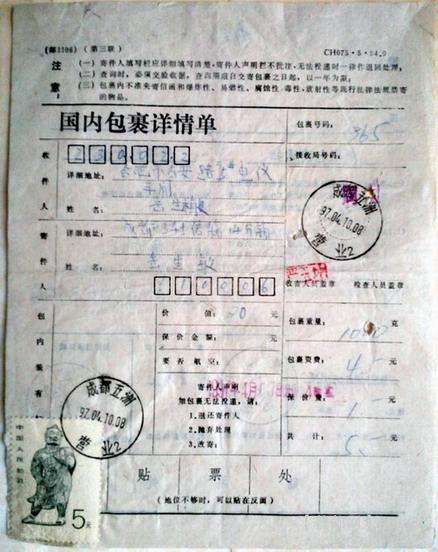 (邮1106)(第三联)
CH075·5·94.9
注意:
(一)寄件人填写栏应详细填写清楚,寄件人声明拦不批注,无法投递时一律作退回处理;
(二)查询时,必须交验收据,查询期自交寄包裹之日起,以一年为限;
(三)包裹内不准夹寄信函和爆炸性、易燃性、腐蚀性、毒性、放射性等现行法律法规禁寄的物品。
国内包裹详情单
包裹号码:
365
接收局号码:
收件人
详细地址:
姓名:
寄件人
详细地址:
姓名:
岳生敏
610006
收寄人员盖章
检查人员盖章
成都五洲
97.04.10.08
营
北2
包内装有
价值:
20
元
保价金额:
元
要否航空:
寄件人声明
如包裹无法投递,请:
1.退还寄件人
2.抛弃处理
3.改寄:
包裹重量:
克
包裹资费:
4
元
保价费:
1
元
共计:
5
元
成都五洲
97.04.10.08
营
北2
中国人民邮政
5元
贴票处
(地位不够时,可以贴在反面)